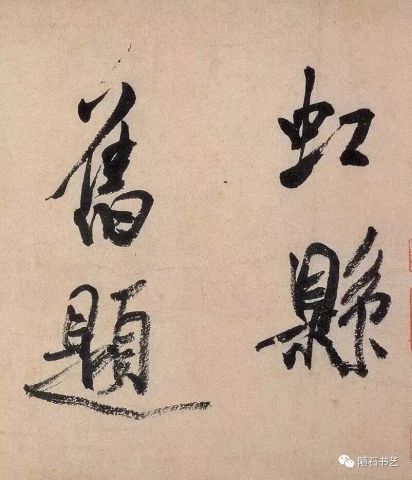 虹縣
舊題
陋石书艺